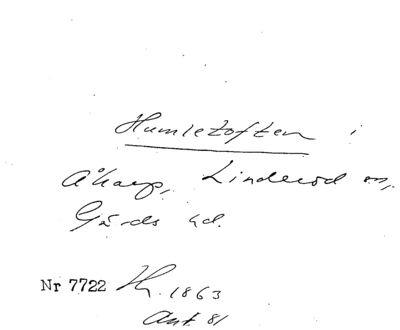 Humletoften i
Åkarp, Linderöd sn,
Gärds hd.
Nr 7722 H. 1863
Ant. 81